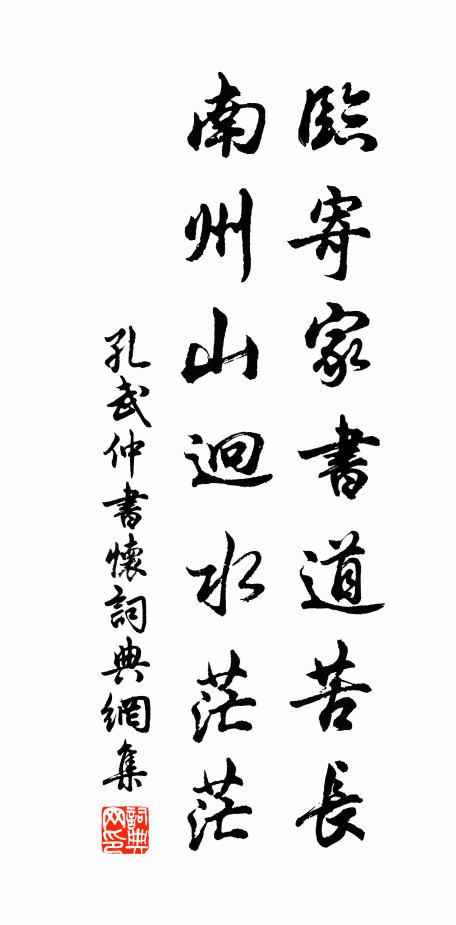 臨寄家書道苦長
南州山迴水茫茫
孔武仲書懷詞典網集
詞典
网印